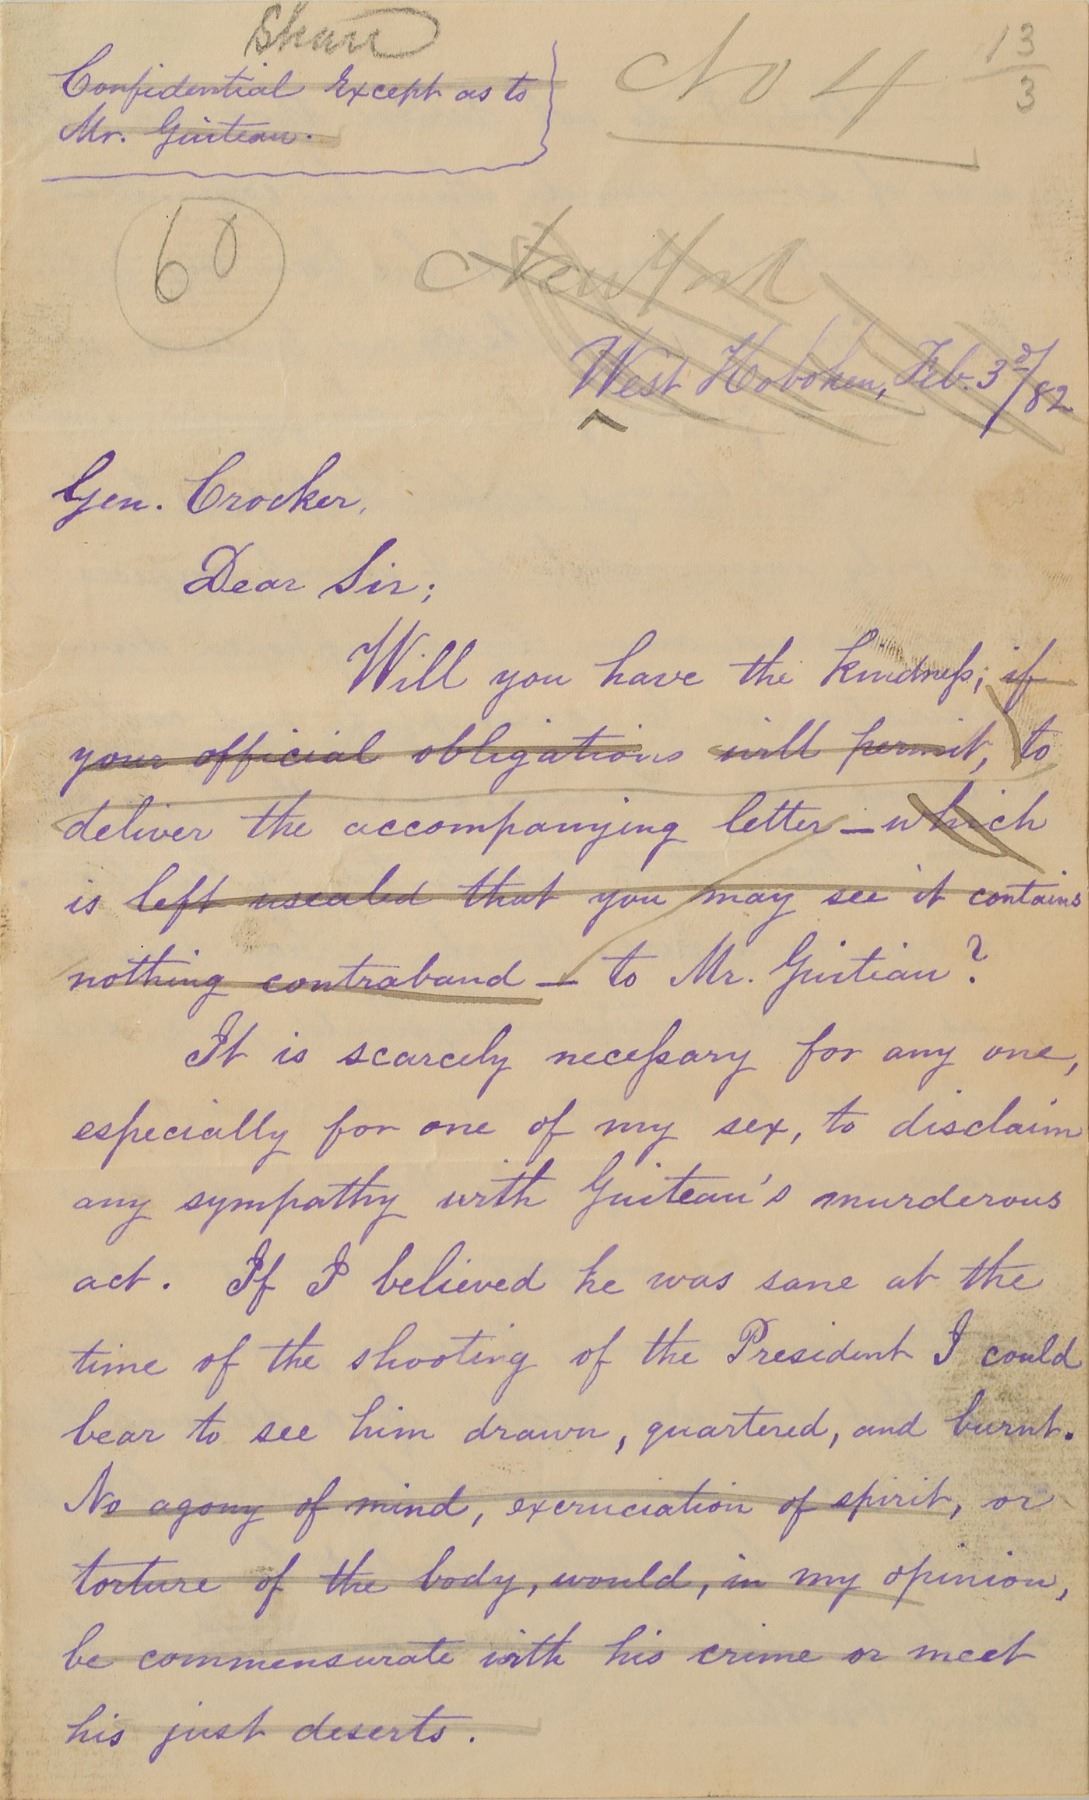 Share
Confidential Except as to
Mr. Guiteau.
No 4
13
3
60
New York
West Hoboken, Feb. 3d/82
Gen. Crocker,
Dear Sir;
Will you have the kindness; if
your official obligations will permit, to
deliver the accompanying letter — which
is left usealed that you may see it contains
nothing contraband — to Mr. Guiteau?
It is scarcely necessary for any one,
especially for one of my sex, to disclaim
any sympathy with Guiteau's murderous
act. If I believed he was sane at the
time of the shooting of the President I could
bear to see him drawn, quartered, and burnt.
No agony of mind, excruciation of spirit, or
torture of the body, would, in my opinion,
be commensurate with his crime or meet
his just deserts.